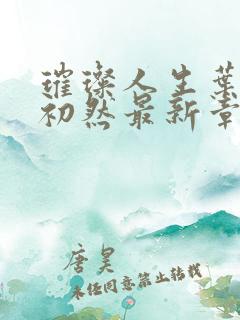 璀璨人生叶
初然最新章
唐昊
未经同意禁止转载